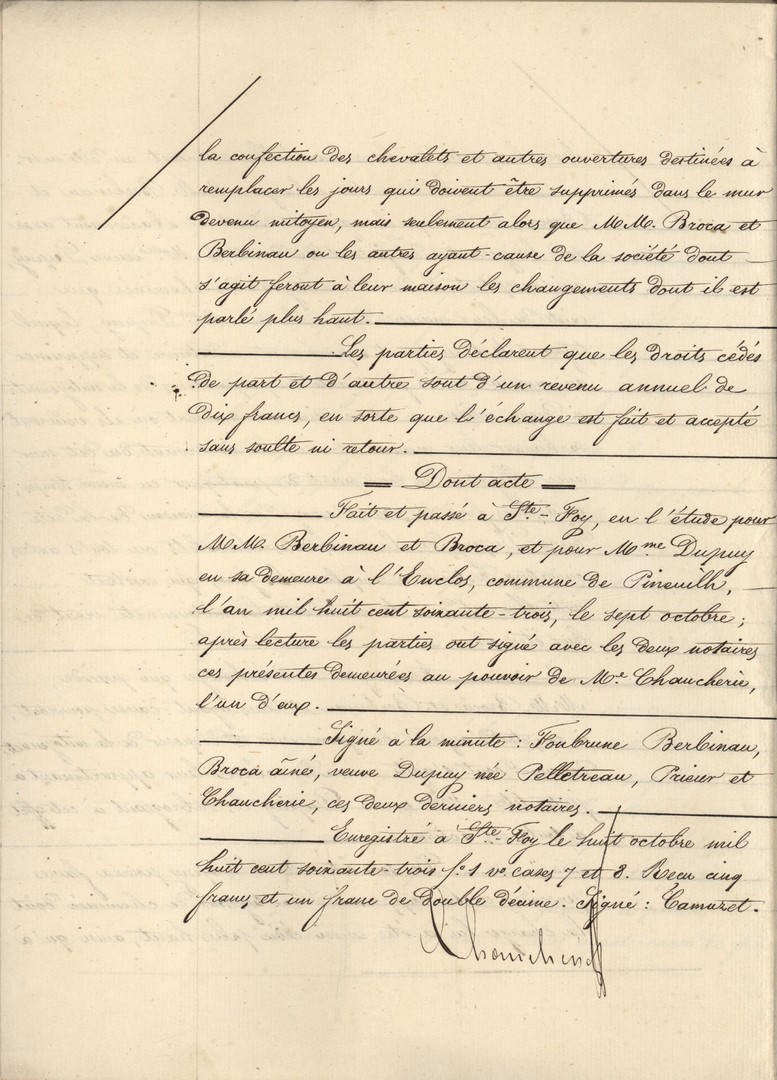 la confection des chevalets et autres ouvertures destinées à
remplacer les jours qui doivent être supprimés dans le mur
devenu mitoyen, mais seulement alors que M.M. Broca et
Berbinau ou les autres ayant-cause de la société dont
s'agit feront à leur maison les changements dont il est
parlé plus haut.
Les parties déclarent que les droits cédés
de part et d'autre sont d'un revenu annuel de
dix francs, en sorte que l'échange est fait et accepté
sans soulte ni retour.
Dont acte
Fait et passé à Ste-Foy, en l'étude pour
M.M. Berbinau et Broca, et pour Mme Dupuy
en sa demeure à l'Enclos, commune de Pineuilh,
l'an mil huit cent soixante-trois, le sept octobre;
après lecture les parties ont signé avec les deux notaires
ces présentes demeurées au pouvoir de Me Chaucherie,
l'un d'eux.
Signé à la minute: Foubrune Berbinau,
Broca aîné, veuve Dupuy née Pelletreau, Prieur et
Chaucherie, ces deux derniers notaires.
Enregistré à Ste-Foy le huit octobre mil
huit cent soixante-trois fo 1 vo cases 7 et 8. Recu cinq
francs et un franc de double décime. Signé: Camuzet.